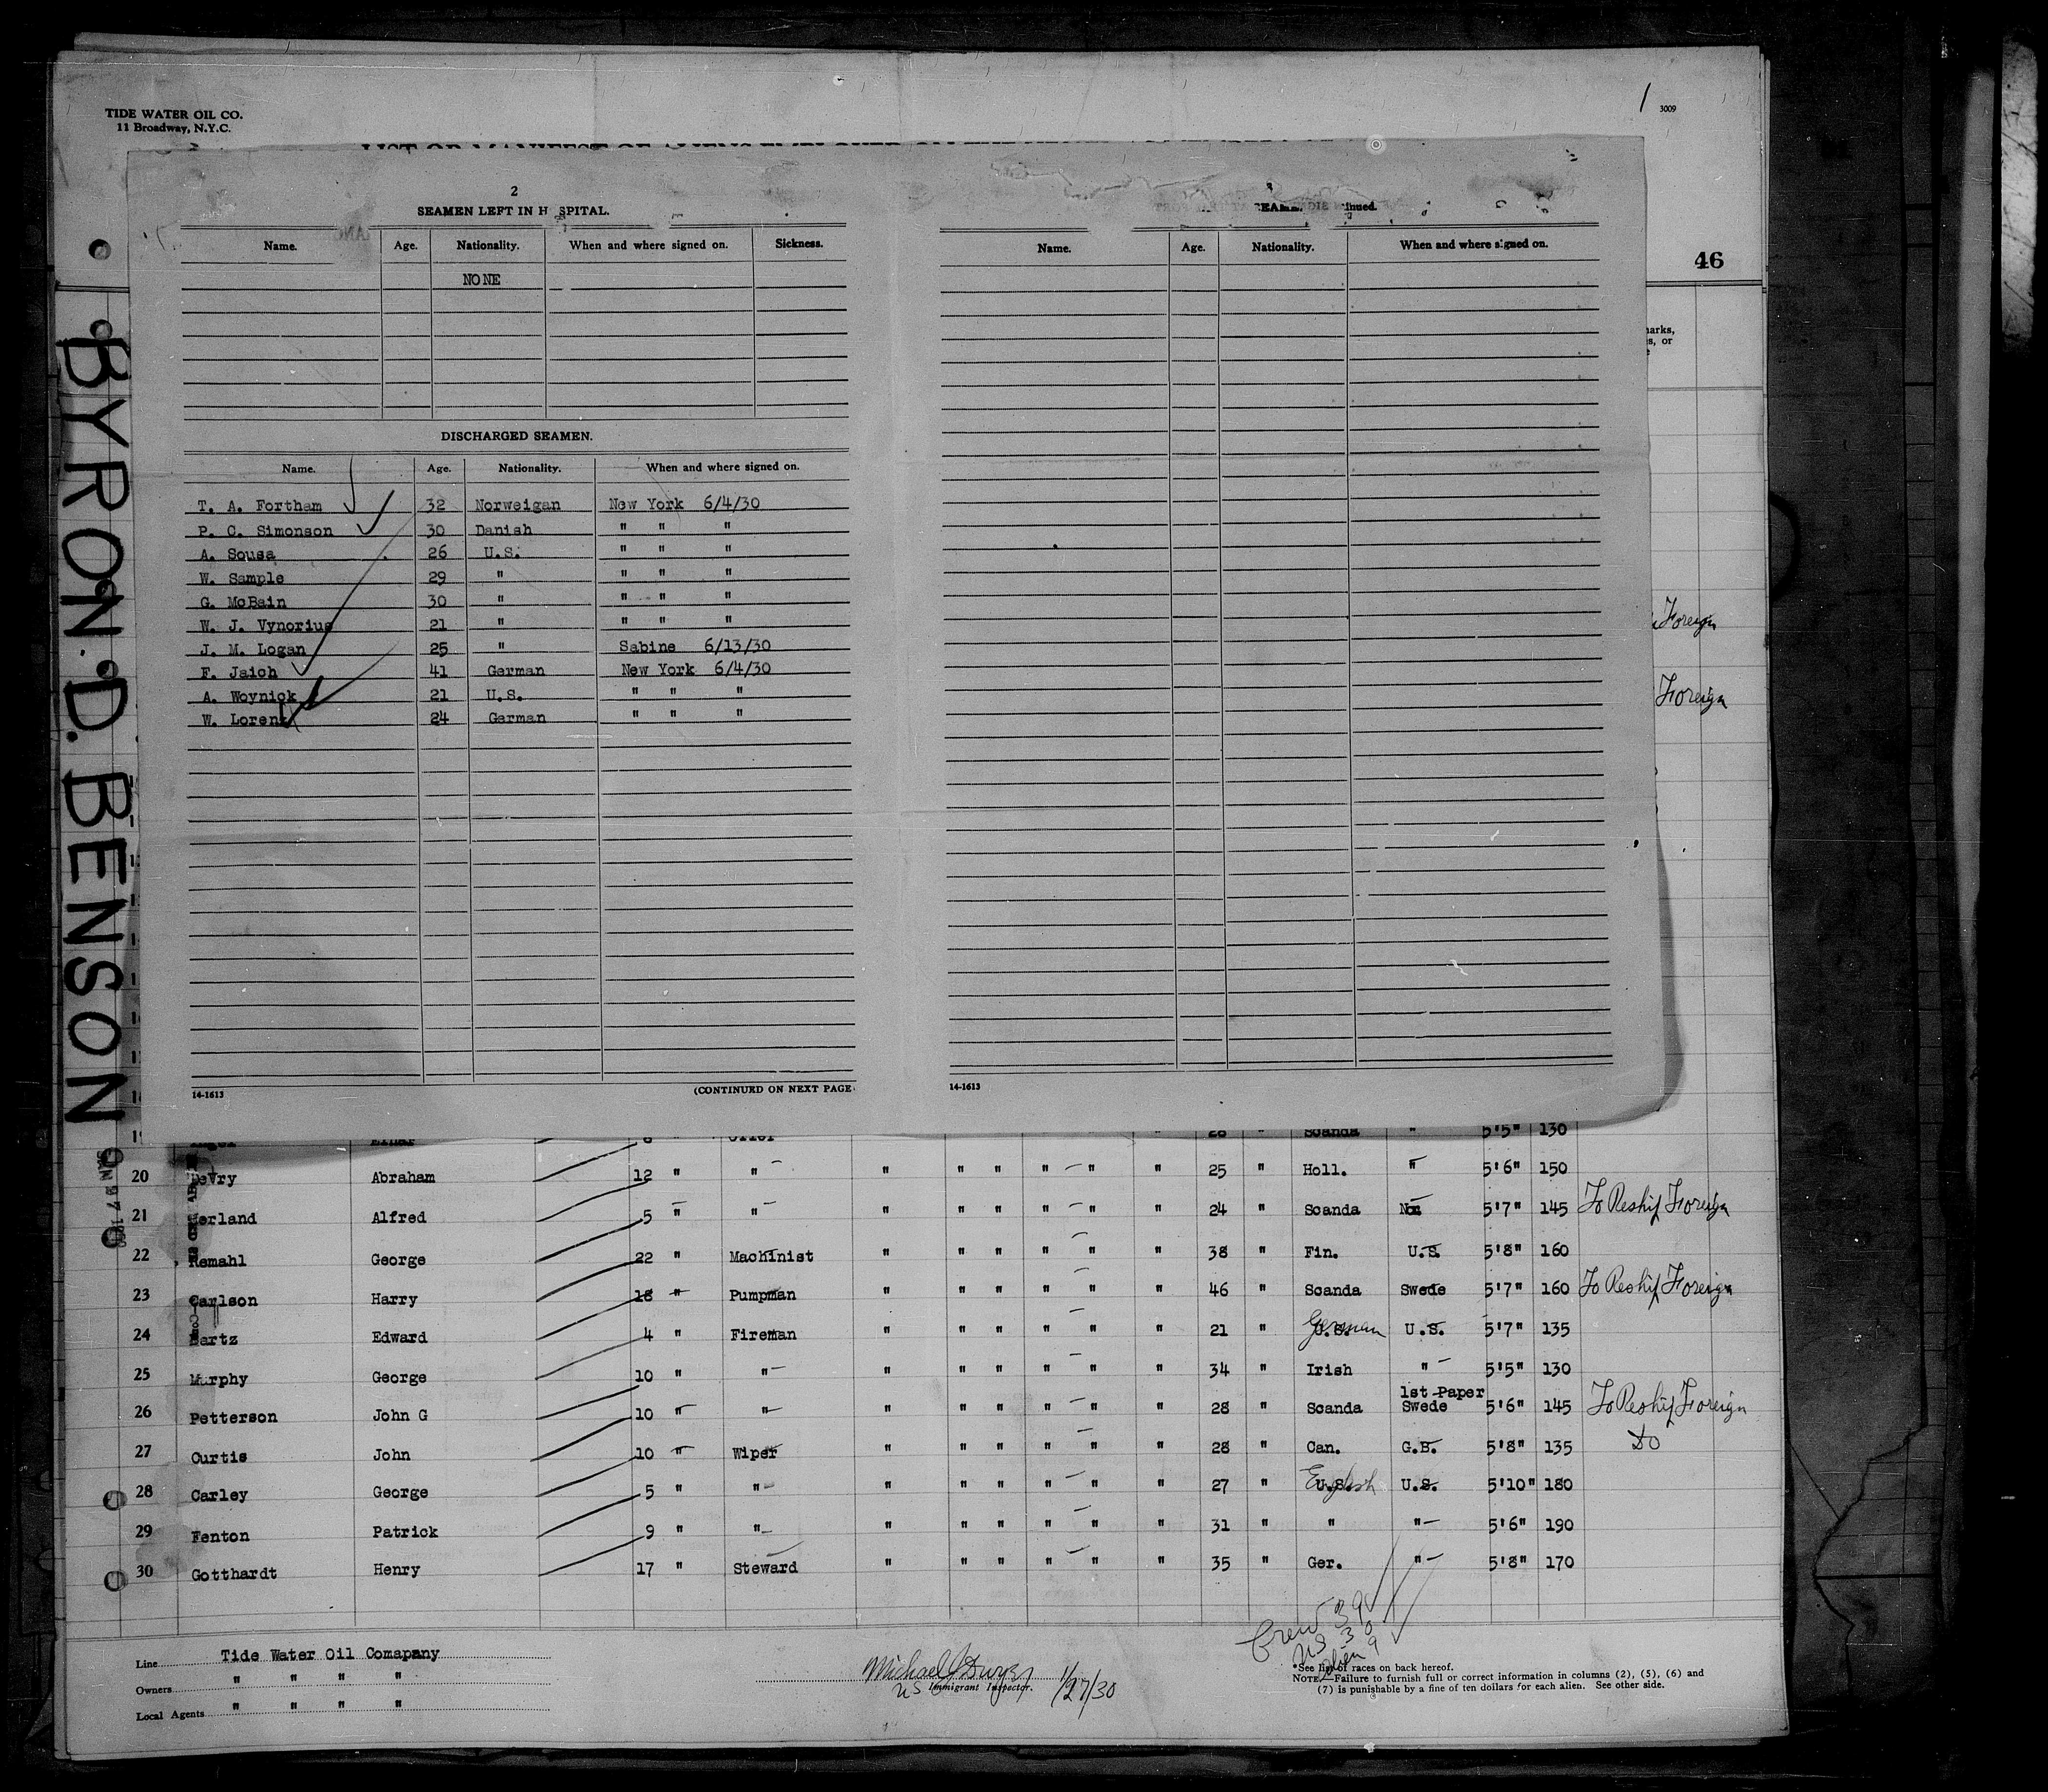 TIDE WATER OIL CO.
11 Broadway, N.Y.C.
1 3009
46
BYRON. D. BENSON
2
SEAMEN LEFT IN H SPITAL.
Name. Age. Nationality. When and where signed on. Sickness.
NONE
DISCHARGED SEAMEN.
Name. Age. Nationality. When and where signed on.
T. A. Fortham 32 Norweigan New York 6/4/30
P. C. Simonson 30 Danish " " "
A. Sousa 26 U.S. " " "
W. Sample 29 " " " "
G. McBain 30 " " " "
W. J. Vynorius 21 " " " "
J. M. Logan 25 " Sabine 6/13/30
F. Jaich 41 German New York 6/4/30
A. Woynick 21 U.S. " " "
W. Lorenz 24 German " " "
14-1613 (CONTINUED ON NEXT PAGE
inued.
Name. Age. Nationality. When and where signed on.
14-1613
arks,
s, or
Foreign
Foreign
28 " Scanda " 5'5" 130
20 DeVry Abraham 12 " " " " " " " " 25 " Holl. " 5'6" 150
21 Herland Alfred 5 " " " " " " " " 24 " Scanda Nor 5'7" 145 To Reship Foreign
22 Remahl George 22 " Machinist " " " " " " 38 " Fin. U.S. 5'8" 160
23 Carlson Harry 18 " Pumpman " " " " " " 46 " Scanda Swede 5'7" 160 To Reship Foreign
24 Bartz Edward 4 " Fireman " " " " " " 21 " U.S. German U.S. 5'7" 135
25 Murphy George 10 " " " " " " " " 34 " Irish " 5'5" 130
1st Paper
26 Petterson John G 10 " " " " " " " " 28 " Scanda Swede 5'6" 145 To Reship Foreign
27 Curtis John 10 " Wiper " " " " " " 28 " Can. G.B. 5'8" 135 Do
28 Carley George 5 " " " " " " " " 27 " U.S. English U.S. 5'10" 180
29 Fenton Patrick 9 " " " " " " " " 31 " " " 5'6" 190
30 Gotthardt Henry 17 " Steward " " " " " " 35 " Ger. " 5'8" 170
Crew 39
US 30
Alien 9
Line Tide Water Oil Comapany
Owners " " " "
Local Agents " " " "
Michael J Dwyer
US Immigrant Inspector. 1/27/30
*See list of races on back hereof.
NOTE.—Failure to furnish full or correct information in columns (2), (5), (6) and
(7) is punishable by a fine of ten dollars for each alien. See other side.